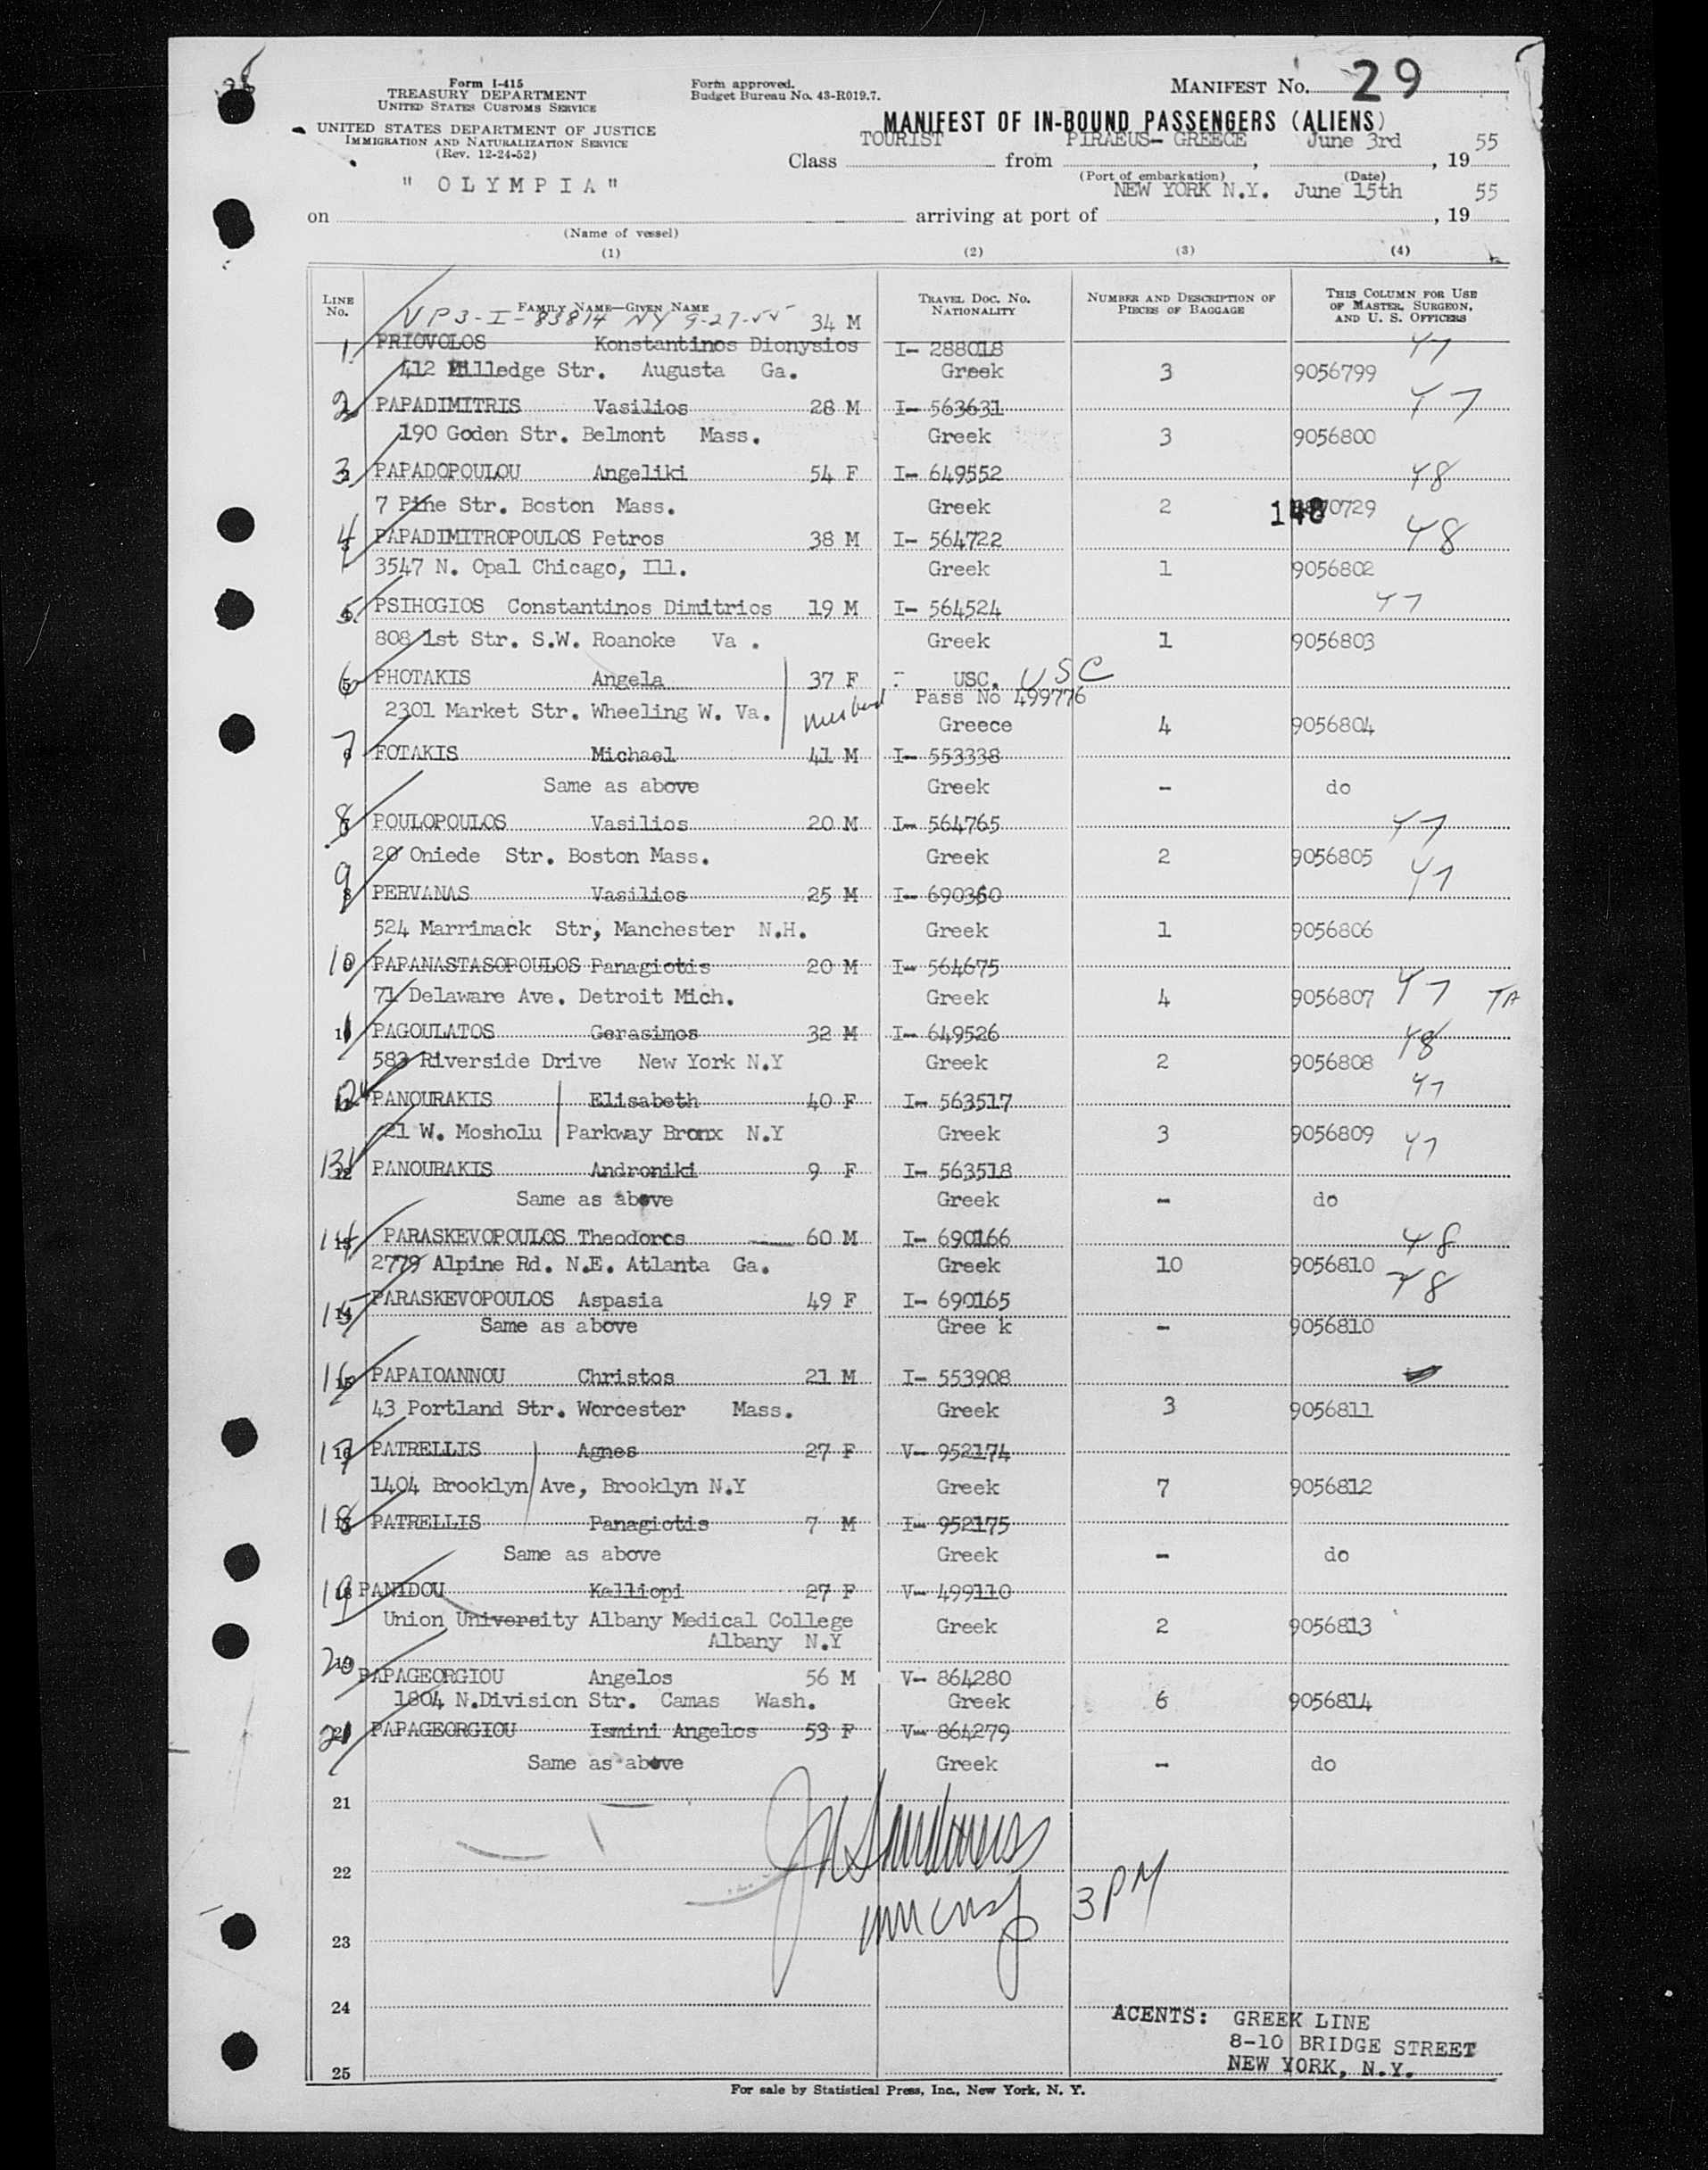 Form I-415
TREASURY DEPARTMENT
UNITED STATES CUSTOMS SERVICE
UNITED STATES DEPARTMENT OF JUSTICE
IMMIGRATION AND NATURALIZATION SERVICE
(Rev. 12-24-52)
Form approved.
Budget Bureau No. 43-R019.7.
MANIFEST No. 29
MANIFEST OF IN-BOUND PASSENGERS (ALIENS)
Class TOURIST from PIRAEUS- GREECE, June 3rd, 19 55
(Port of embarkation) (Date)
on " OLYMPIA" arriving at port of NEW YORK N.Y. June 15th, 19 55
(Name of vessel)
(1) (2) (3) (4)
LINE No. FAMILY NAME—GIVEN NAME TRAVEL DOC. NO. NATIONALITY NUMBER AND DESCRIPTION OF PIECES OF BAGGAGE THIS COLUMN FOR USE OF MASTER, SURGEON, AND U. S. OFFICERS
VP3-I-83814 NY 9-27-55 34 M
1 PRIOVOLOS Konstantinos Dionysios I- 288018 47
412 Milledge Str. Augusta Ga. Greek 3 9056799
2 PAPADIMITRIS Vasilios 28 M I- 563631 47
190 Goden Str. Belmont Mass. Greek 3 9056800
3 PAPADOPOULOU Angeliki 54 F I- 649552 48
7 Pine Str. Boston Mass. Greek 2 148 70729
4 PAPADIMITROPOULOS Petros 38 M I- 564722 48
3547 N. Opal Chicago, Ill. Greek 1 9056802
5 PSIHOGIOS Constantinos Dimitrios 19 M I- 564524 47
808 1st Str. S.W. Roanoke Va . Greek 1 9056803
6 PHOTAKIS Angela 37 F - USC. USC
Pass No 499776
2301 Market Str. Wheeling W. Va. husband Greece 4 9056804
7 FOTAKIS Michael 41 M I- 553338
Same as above Greek - do
8 POULOPOULOS Vasilios 20 M I- 564765 47
20 Oniede Str. Boston Mass. Greek 2 9056805
9 PERVANAS Vasilios 25 M I- 690360 47
524 Marrimack Str, Manchester N.H. Greek 1 9056806
10 PAPANASTASOPOULOS Panagiotis 20 M I- 564675
71 Delaware Ave. Detroit Mich. Greek 4 9056807 47 TA
11 PAGOULATOS Gerasimos 32 M I- 649526 48
583 Riverside Drive New York N.Y Greek 2 9056808
12 PANOURAKIS Elisabeth 40 F I- 563517 47
21 W. Mosholu Parkway Bronx N.Y Greek 3 9056809
13 PANOURAKIS Androniki 9 F I- 563518 47
Same as above Greek - do
14 PARASKEVOPOULOS Theodoros 60 M I- 690166 48
2779 Alpine Rd. N.E. Atlanta Ga. Greek 10 9056810
15 PARASKEVOPOULOS Aspasia 49 F I- 690165 48
Same as above Gree k - 9056810
16 PAPAIOANNOU Christos 21 M I- 553908
43 Portland Str. Worcester Mass. Greek 3 9056811
17 PATRELLIS Agnes 27 F V- 952174
1404 Brooklyn Ave, Brooklyn N.Y Greek 7 9056812
18 PATRELLIS Panagiotis 7 M I- 952175
Same as above Greek - do
19 PANIDOU Kalliopi 27 F V- 499110
Union University Albany Medical College Greek 2 9056813
Albany N.Y
20 PAPAGEORGIOU Angelos 56 M V- 864280
1804 N.Division Str. Camas Wash. Greek 6 9056814
21 PAPAGEORGIOU Ismini Angelos 53 F V- 864279
Same as above Greek - do
21
22
3 PM
23
24
25
AGENTS: GREEK LINE
8-10 BRIDGE STREET
NEW YORK, N.Y.
For sale by Statistical Press, Inc., New York, N. Y.